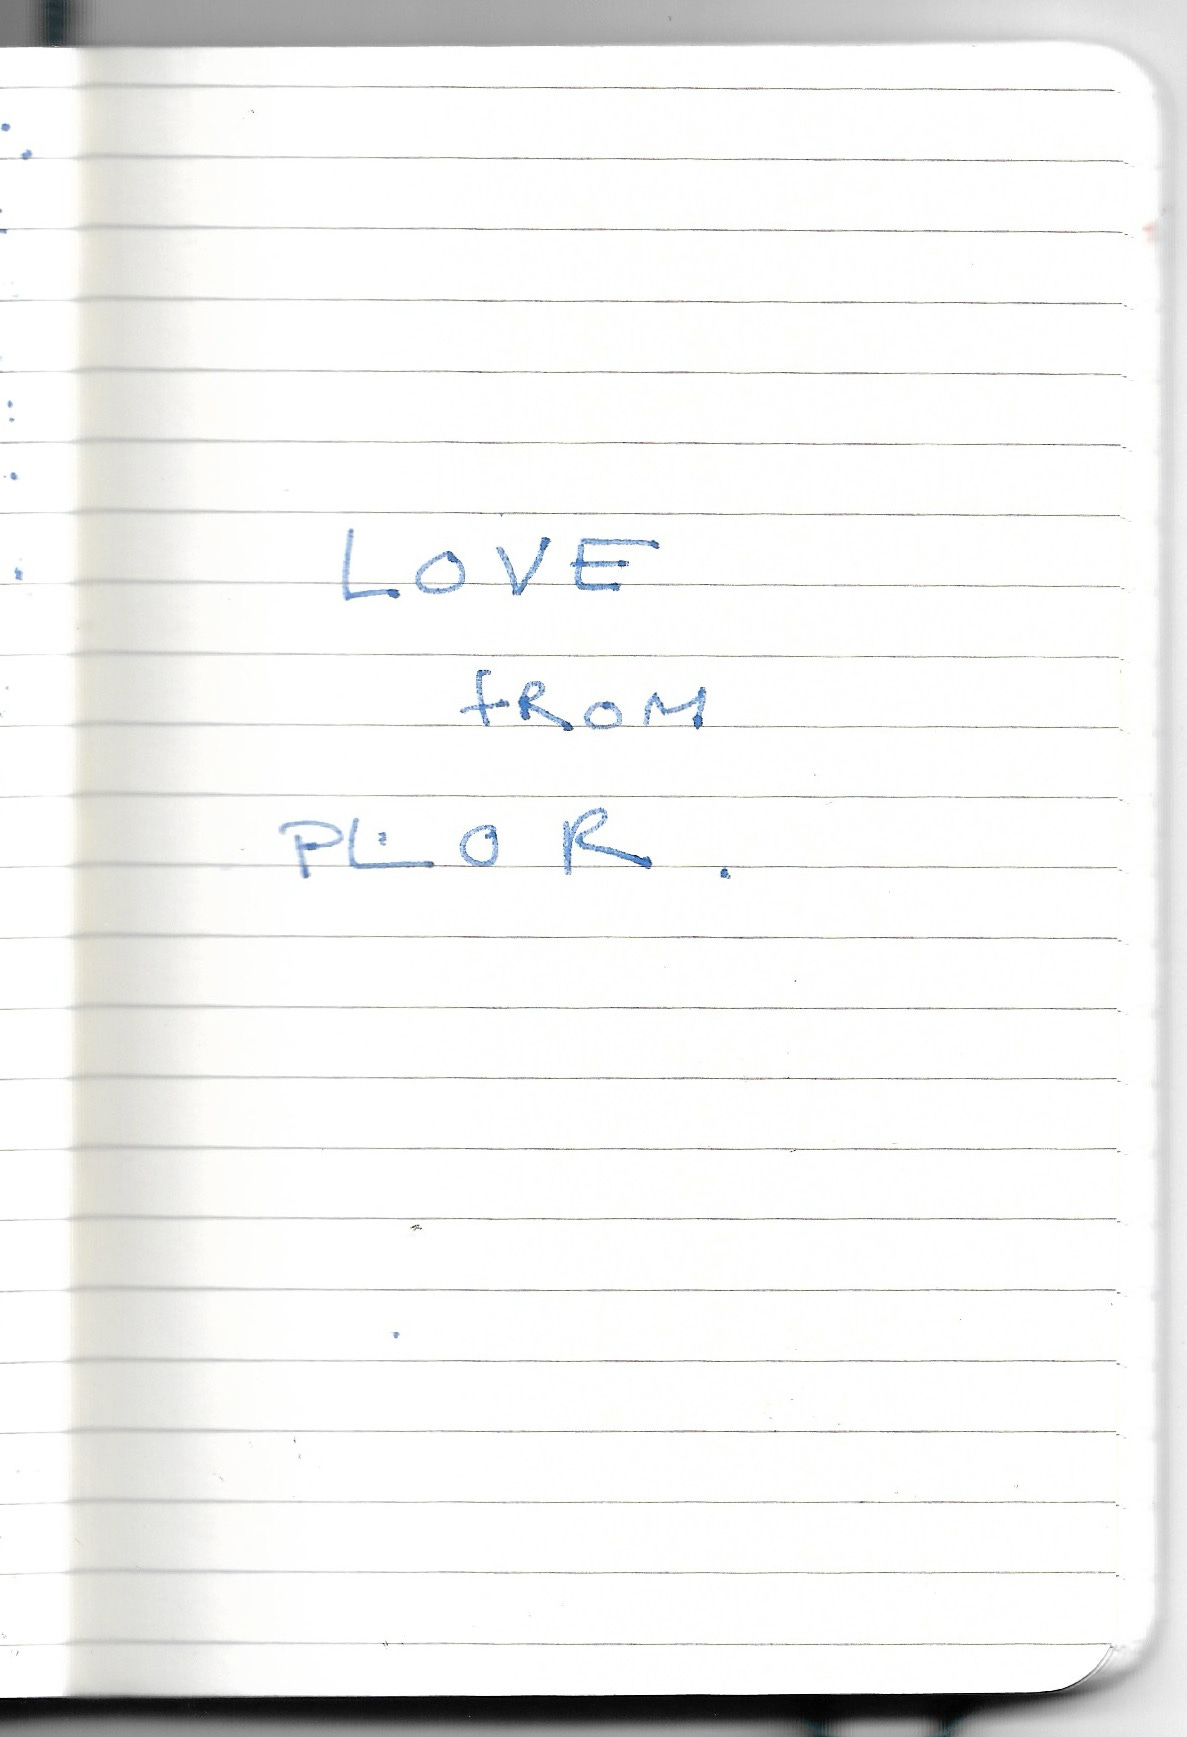 LOVE
fROM
PLOR.